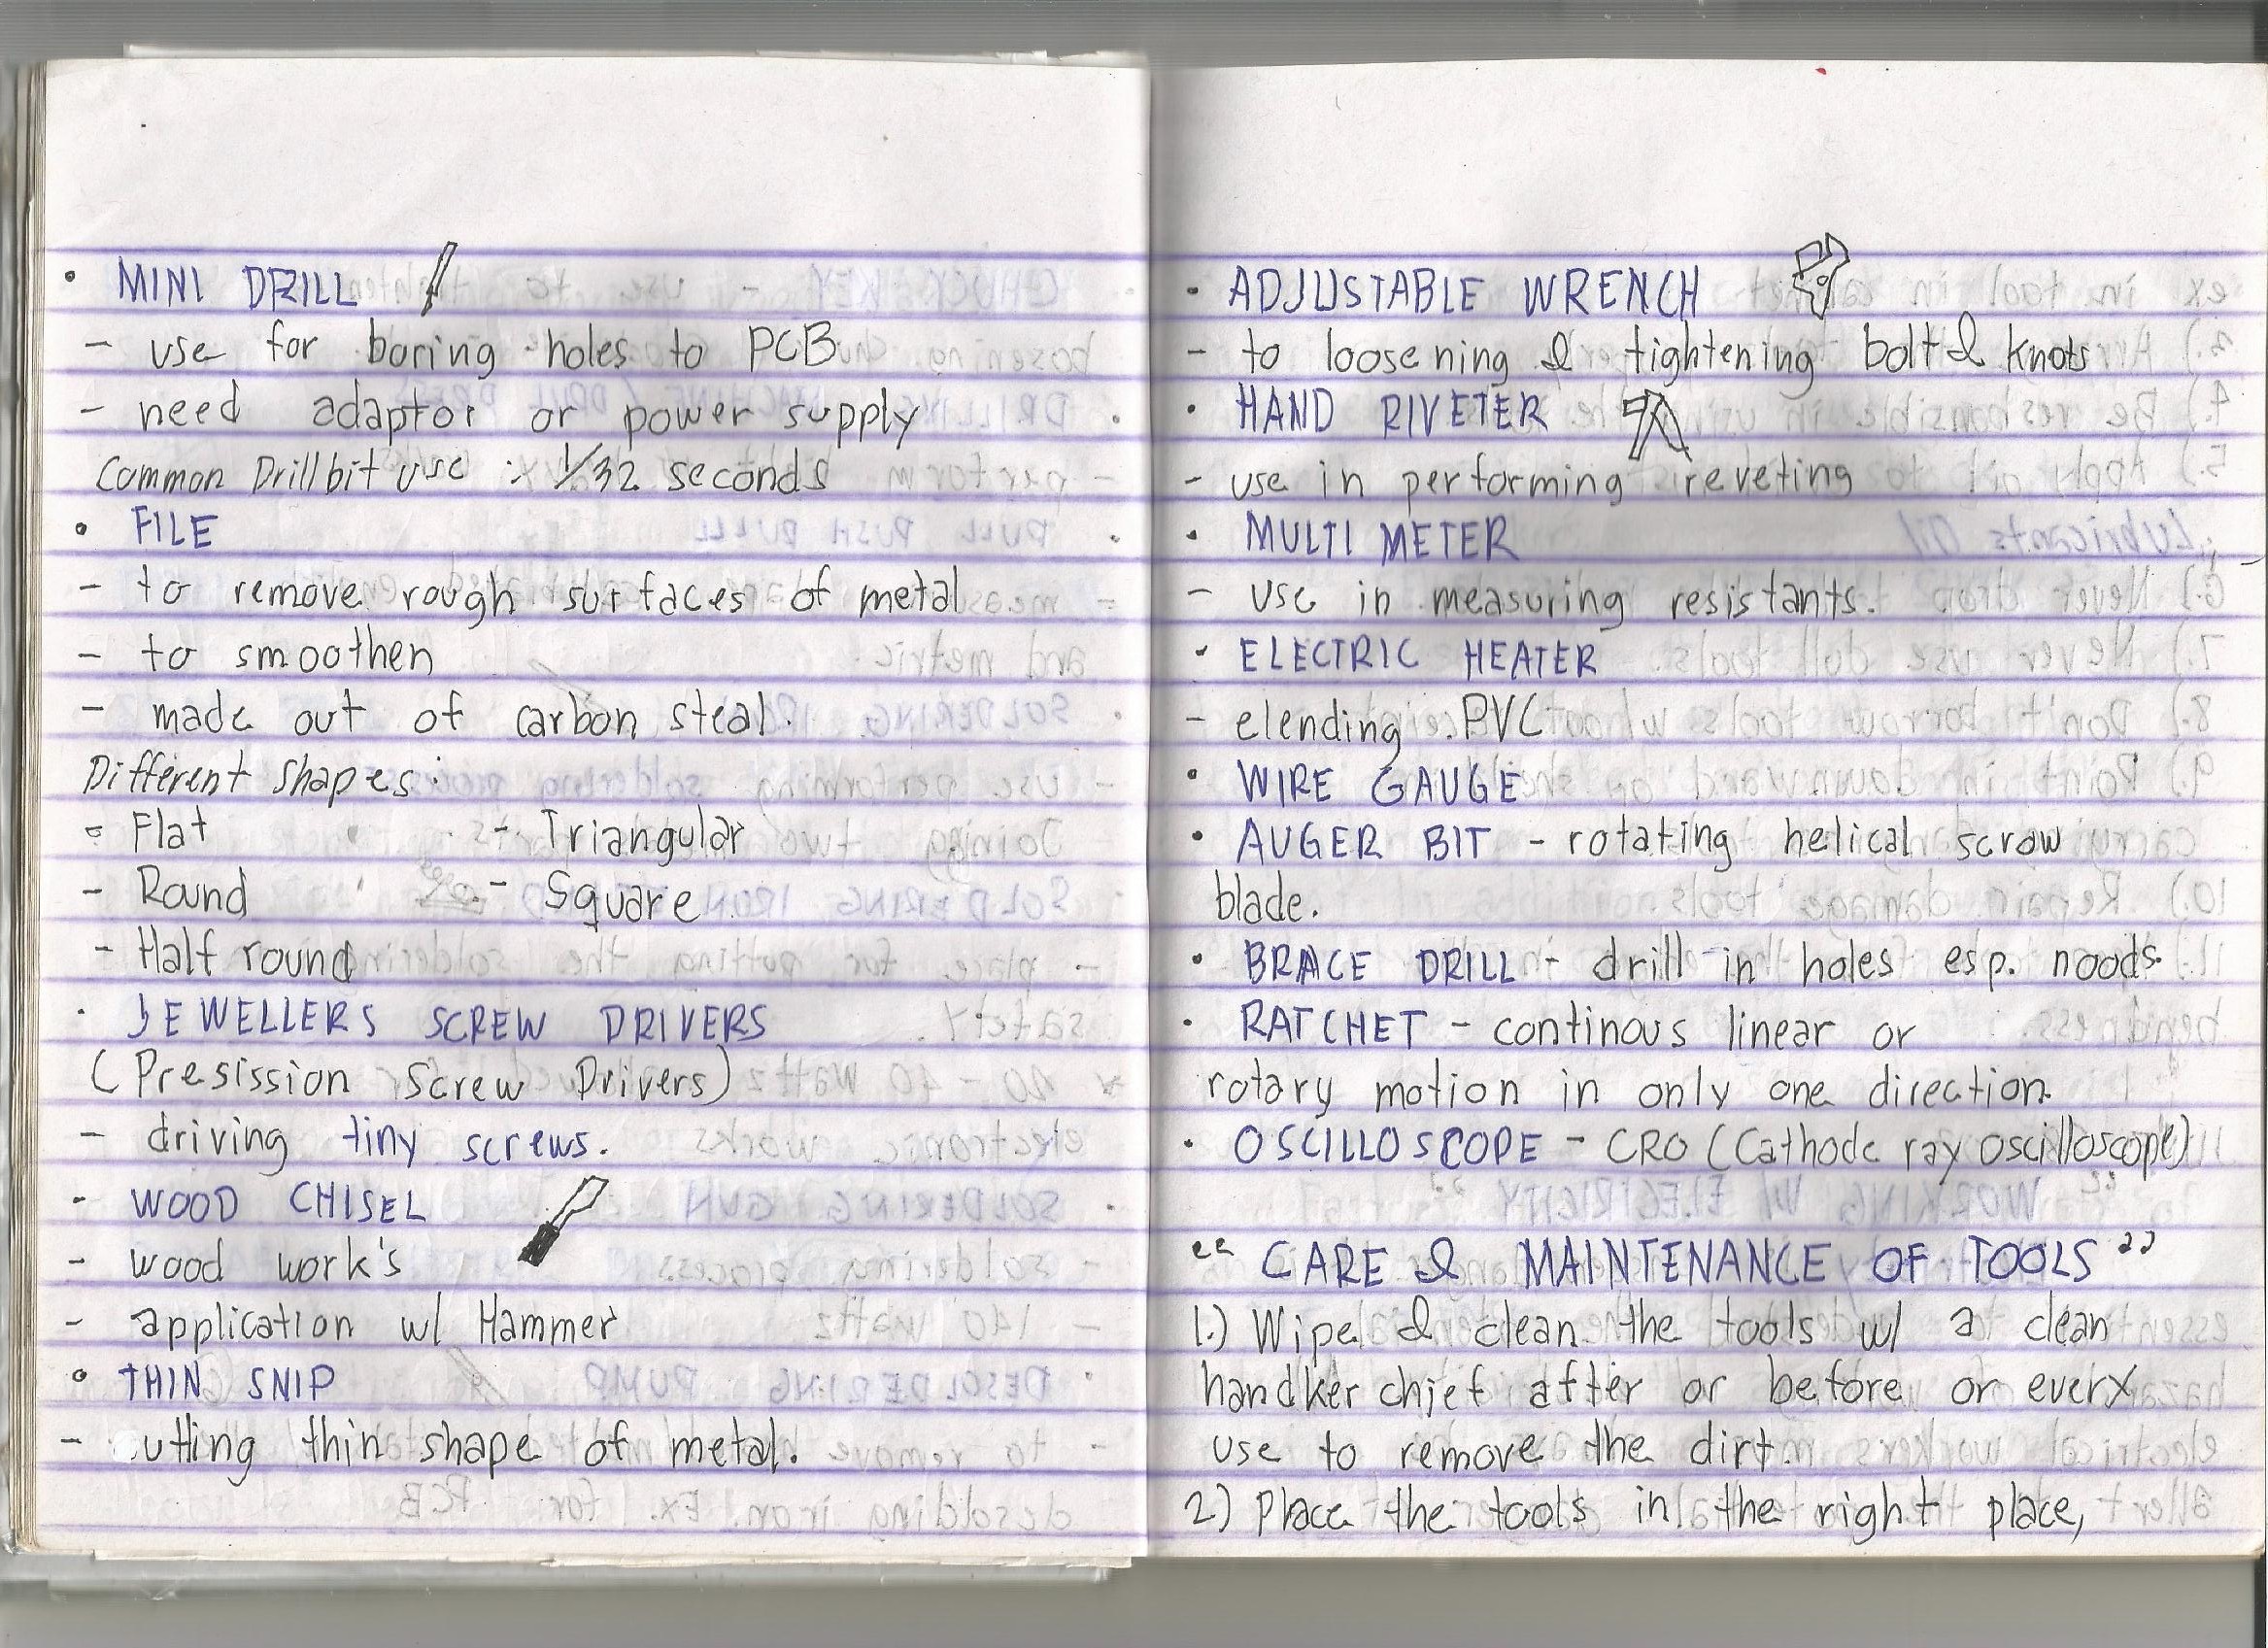 • MINI DRILL
- use for boring holes to PCB
- need adaptor or power supply
Common Drillbit use : 1/32 seconds
• FILE
- to remove rough surfaces of metal
- to smoothen
- made out of carbon steal.
Different Shapes:
- Flat - Triangular
- Round - Square
- Half round
• JEWELLERS SCREW DRIVERS
(Presission Screw Drivers)
- driving tiny screws.
- WOOD CHISEL
- wood work's
- application w/ Hammer
• THIN SNIP
- utting thin shape of metal.
• ADJUSTABLE WRENCH
- to loosening & tightening bolt & knots
• HAND RIVETER
- use in performing reveting
• MULTI METER
- use in measuring resistants.
• ELECTRIC HEATER
- elending PVC
• WIRE GAUGE
• AUGER BIT - rotating helical scrow
blade.
• BRACE DRILL - drill in holes esp. noods.
• RATCHET - continous linear or
rotary motion in only one direction.
• OSCILLOSCOPE - CRO (Cathode ray oscilloscope)
"CARE & MAINTENANCE OF TOOLS"
1.) Wipe & clean the tools w/ a clean
handkerchief after or before or every
use to remove the dirt.
2.) Place the tools in the right place,